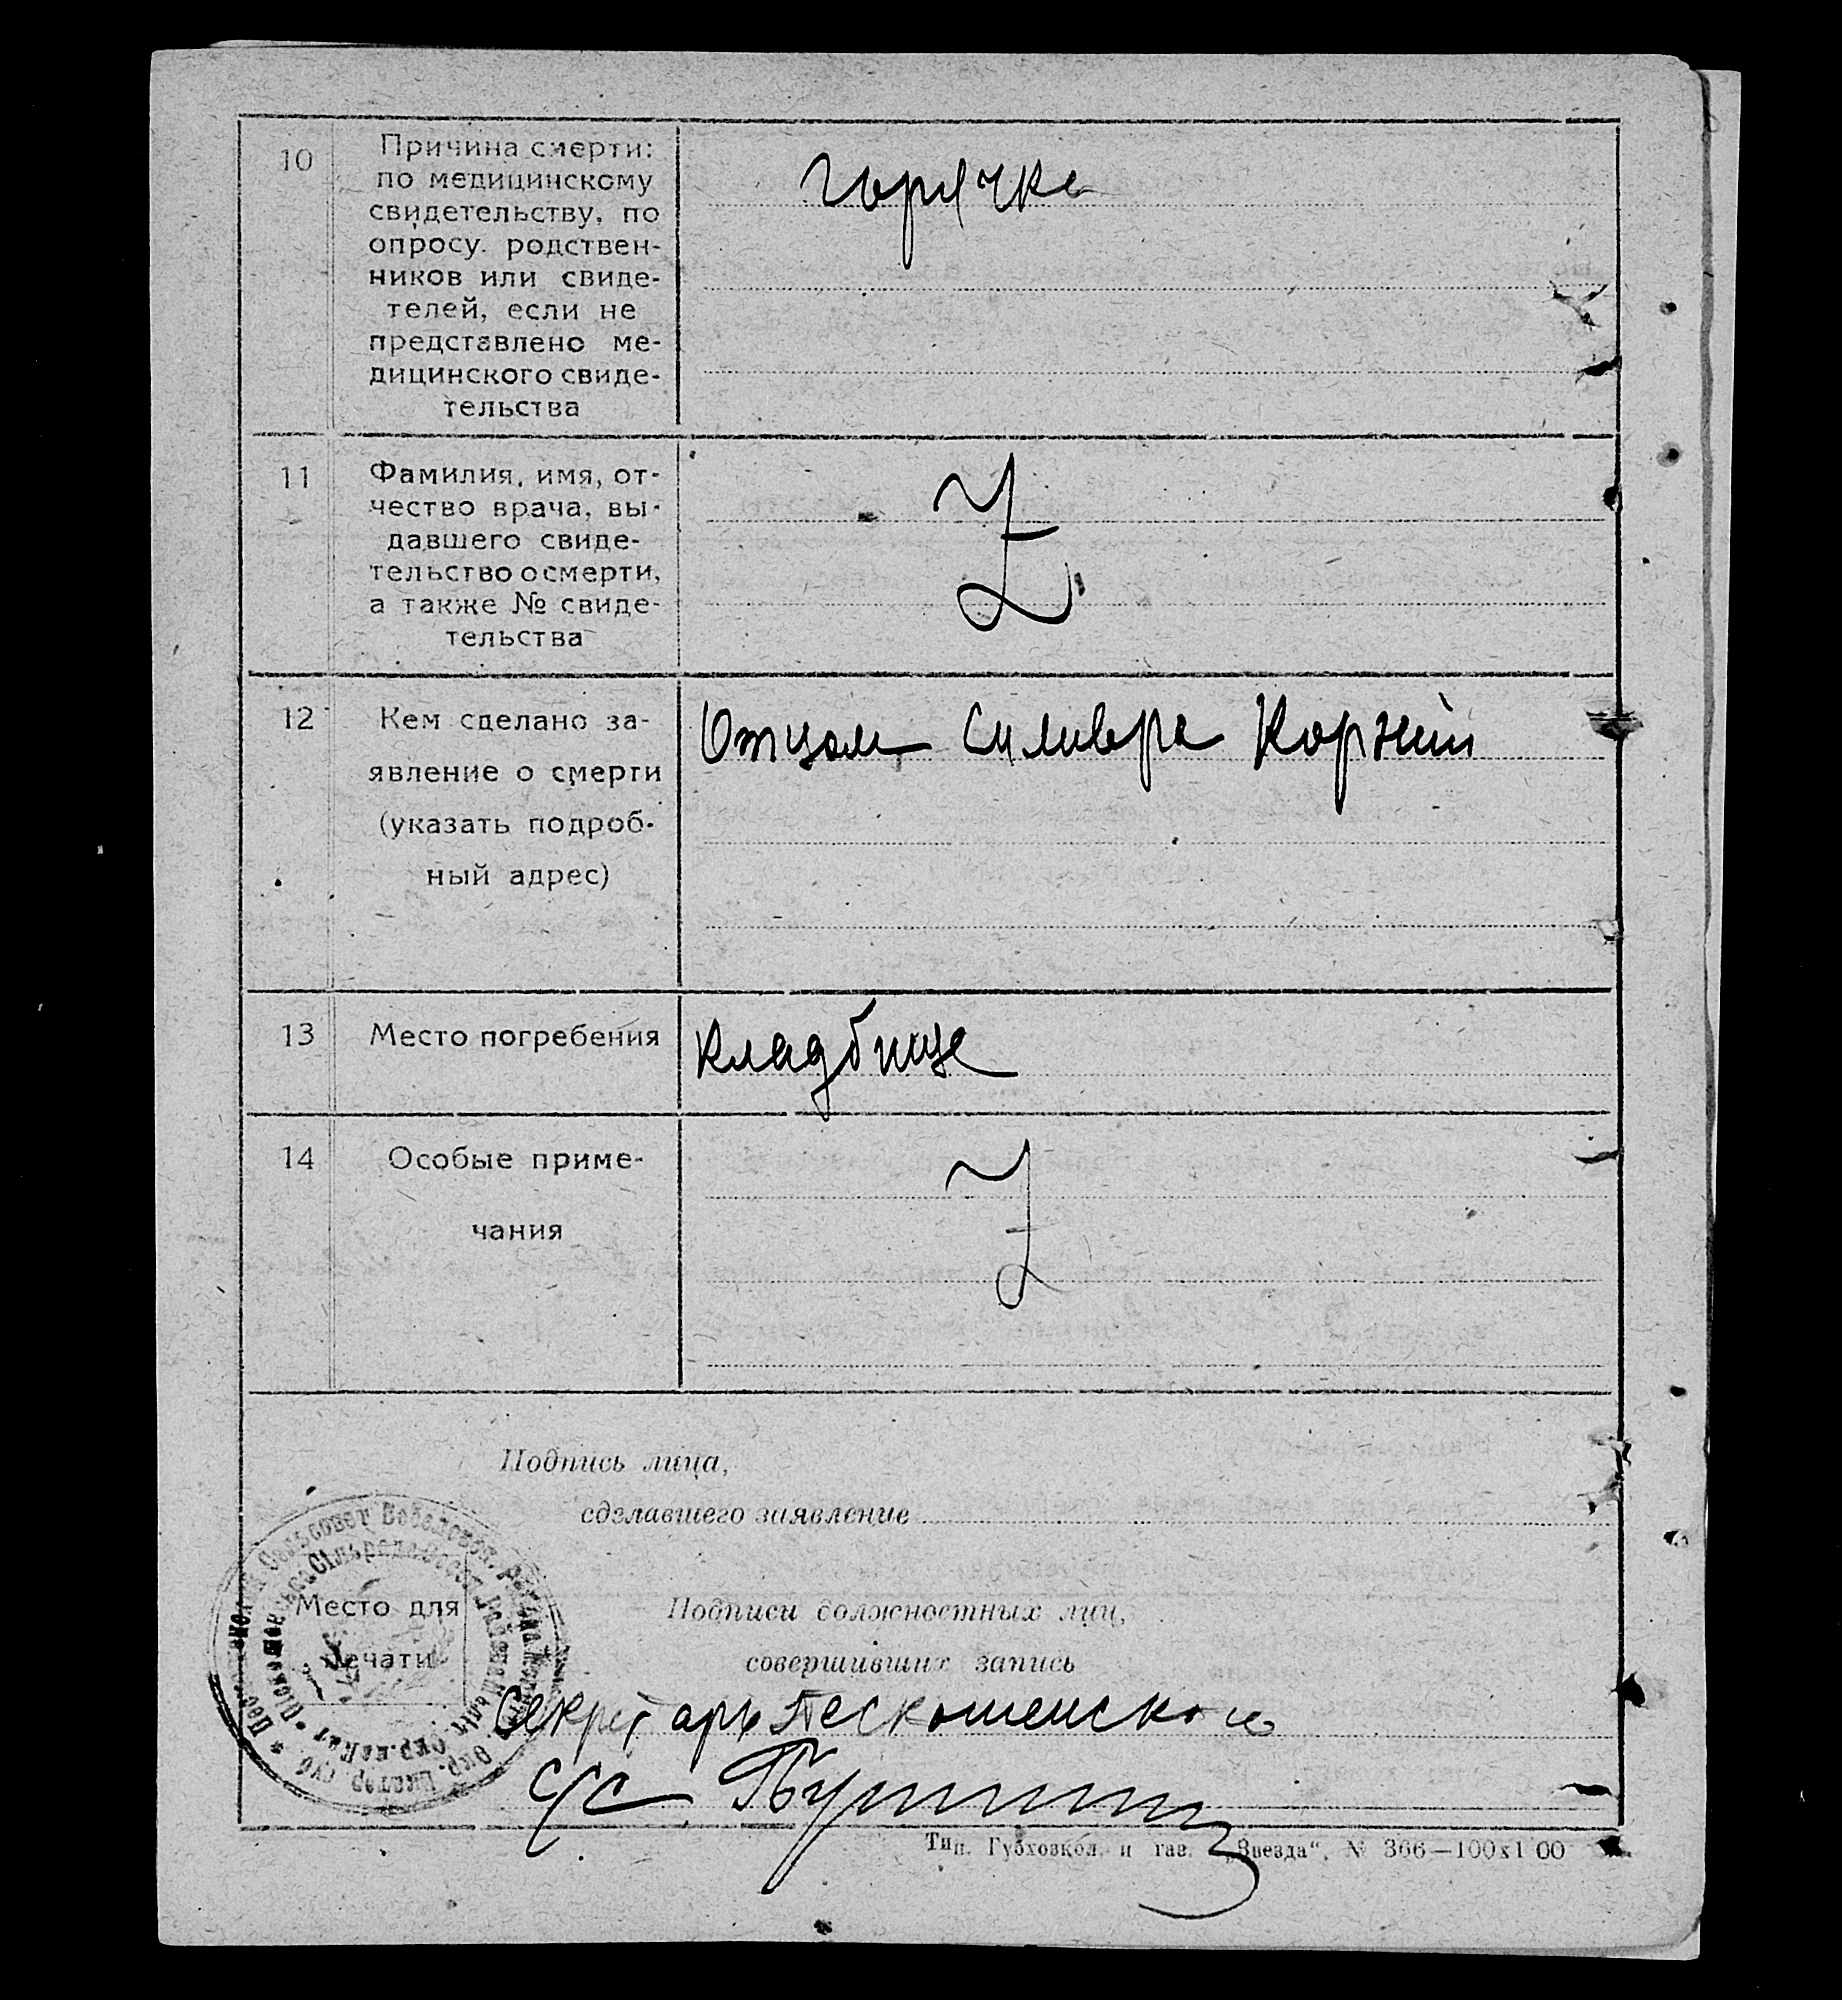 10
Причина смерти:
по медицинскому
свидетельству, по
опросу родствен-
ников или свиде-
телей, если не
представлено ме-
дицинского свиде-
тельства
горячка
11
Фамилия, имя, от-
чество врача, вы-
давшего свиде-
тельство о смерти,
а также № свиде-
тельства
Z
12
Кем сделано за-
явление о смерти
(указать подроб-
ный адрес)
Отцом Силивра Корний
13
Место погребения
Кладбище
14
Особые приме-
чания
Z
Подпись лица,
сделавшего заявление
Место для
печати
Подписи должностных лиц,
совершивших запись
Секретарь Пескошенского
с/с
Тип. Губховкол. и газ. „Звезда“, № 366—100х1 00